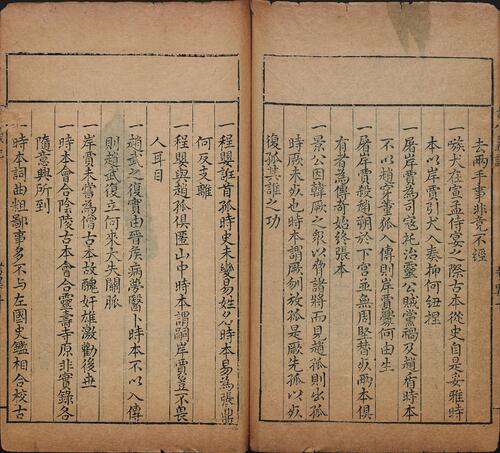 去兩手事非竟不經
一嗾犬在宣孟侍宴之際古本從史自是妥雅時
本以岸賈引犬入奏抑何紐捏
一屠岸賈為司寇祀治靈公賊黨禍及趙盾時本
不以趙穿董狐入傳則岸賈釁何由生
一屠岸賈殺趙朔於下宮並無周堅替死兩本俱
有者為傳奇始終張本
一景公因韓厥之衆以脅諸將而見趙孤則出孤
時厥未死也時本謂厥刎放孤是厥先孤以死
復孤其誰之功
一程嬰誑首孤時史未變易姓名時本易為張鼎
何反支離
一程嬰與趙孤俱匿山中時本謂嗣岸賈並不畏
人耳目
一趙武之復實由晉侯病夢醫卜時本不以入傳
則趙武復立何來大失關脈
一岸賈未嘗為僧古本故醜奸雄激勸後世
一時本會合陰陵古本會合靈壽寺原非實錄各
隨意興所到
一時本詞曲粗鄙事多不与左國史鑑相合校古